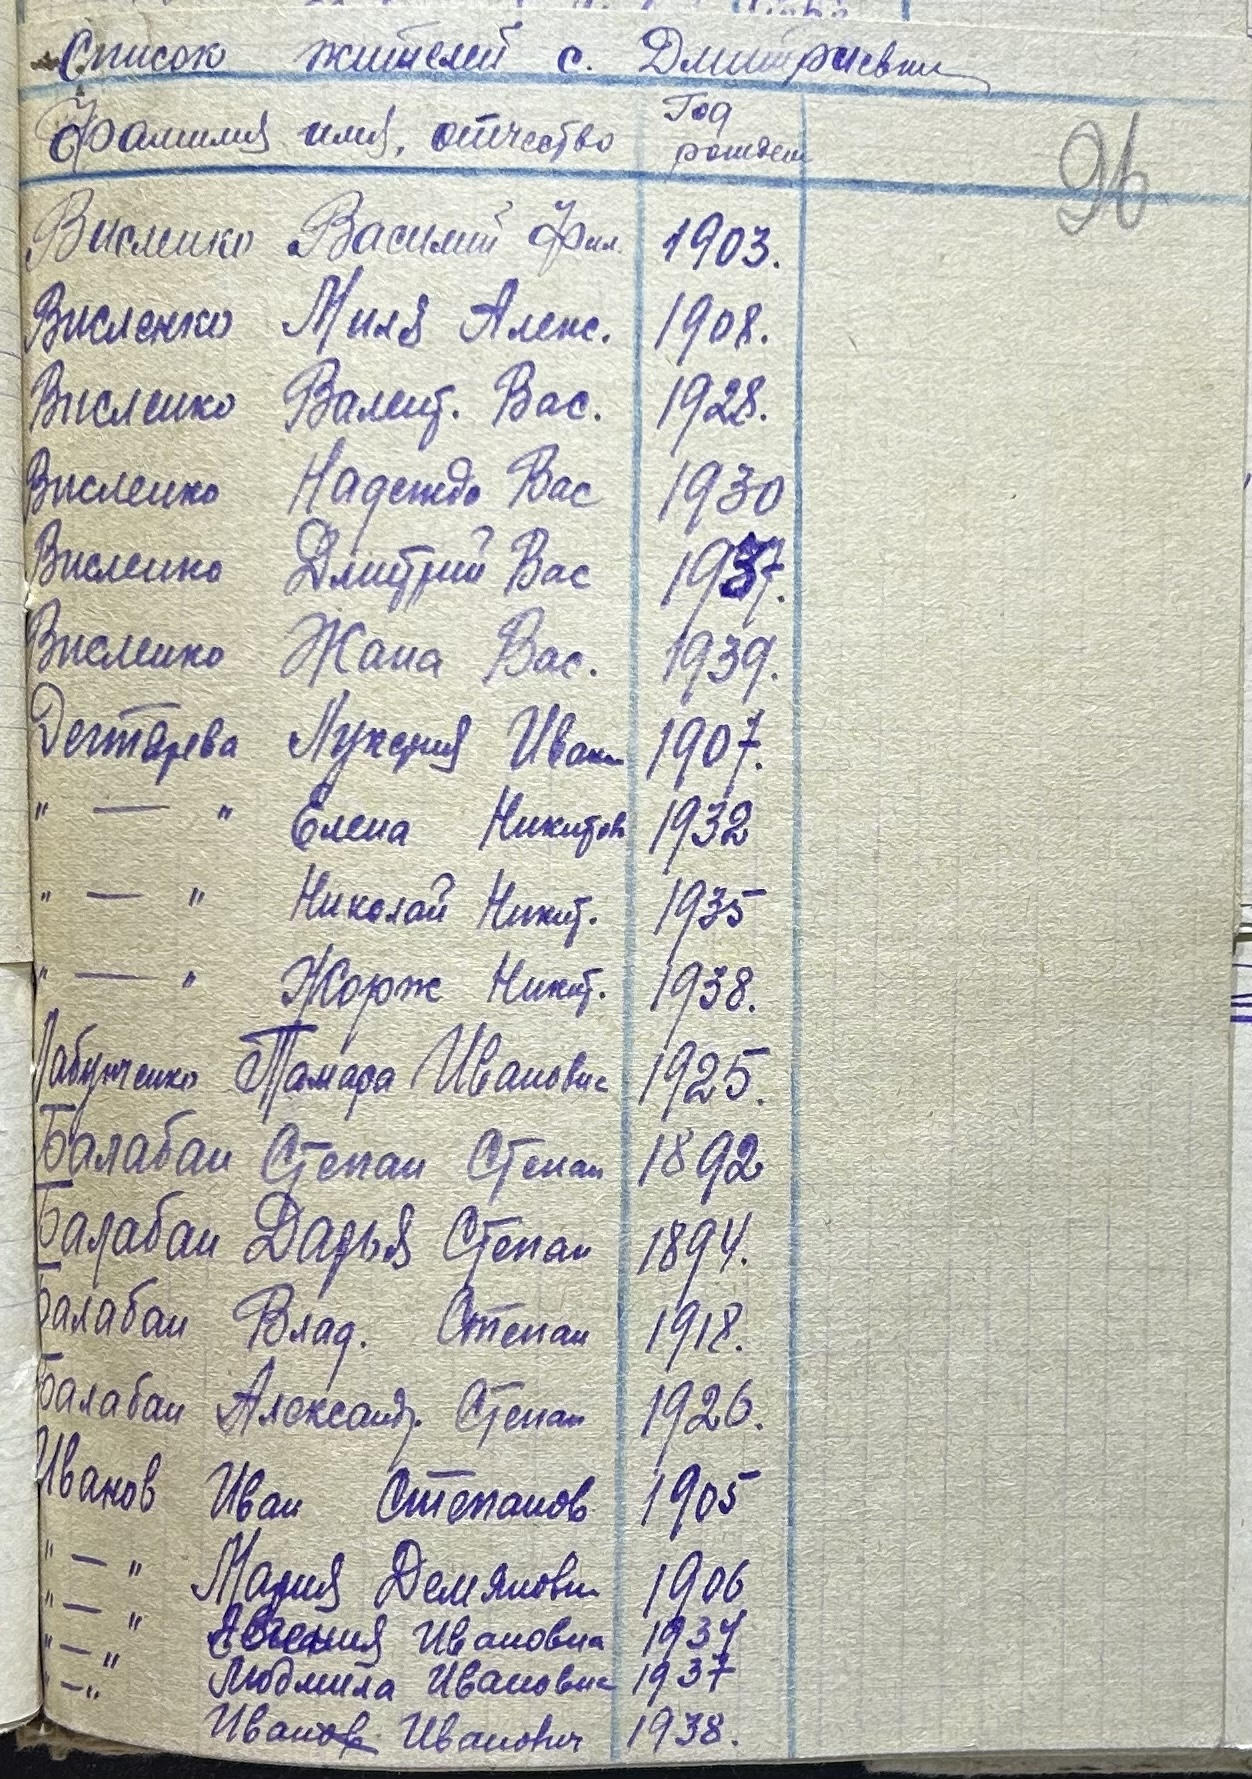 Список жителей с. Дмитриевки
Фамилия имя, отчество Год рожден
96
Висленко Василий Фил. 1903.
Висленко Миля Алекс. 1908.
Висленко Валент. Вас. 1928.
Висленко Надежда Вас 1930
Висленко Дмитрий Вас 1937.
Висленко Жана Вас. 1939.
Дегтярева Лукерия Иван 1907.
" — " Елена Никитов 1932
" — " Николай Никит. 1935
" — " Жорж Никит. 1938.
Лабунченко Тамара Ивановна 1925.
Балабан Степан Степан 1892
Балабан Дарья Степан 1894.
Балабан Влад. Степан 1918.
Балабан Александр. Степан 1926.
Иванов Иван Степанов 1905
" — " Мария Демяновн 1906
" — " Евгения Ивановна 1934
" — " Людмила Ивановна 1937
" — " Иванов Иванович 1938.